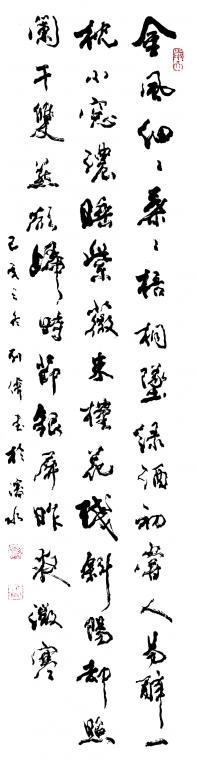 金風細〻葉〻梧桐墜綠酒初嘗人易醉一
枕小窓濃睡紫薇朱槿花殘斜陽却照
闌干雙燕欲歸時節銀屏昨夜微寒
己亥之冬刘偉書於水